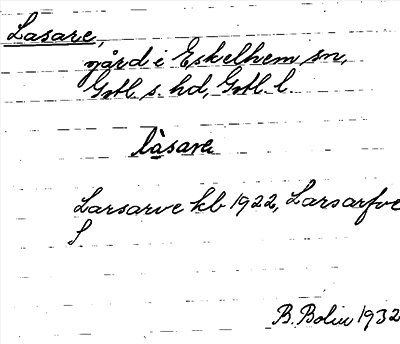 Lasare,
gård i Eskelhem sn,
Gotl. s. hd, Gotl. l.
làsare
Larsarve kb 1922, Larsarfve
f
B. Bolin 1932